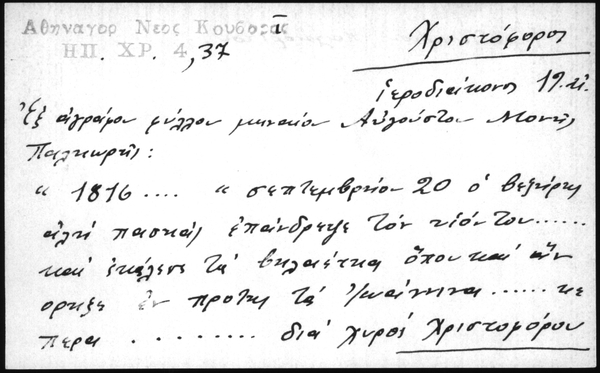 Αθηναγορ Νεος Κουβαρας I
ΗΠ. ΧΡ. 4, 37
Χριστόφορος
ἱεροδιάκονος 19. αἰ.
Ἐξ ἀγράφου φύλλου μηναίου Αὐγούστου Μονῆς
Παλιωρῆς:
" 1816 .... " σεπτεμβρίου 20 ὁ βεζήρης
ἀλή πασιάς ἐπάνδρεψε τόν υἱόν του......
καί ἐκάλεσε τά βιλαέτια ὅπου καί ἄν
οριζε ἐν προτης τά Ἰωάννινα...... κε
περα ......... διά χυρός Χριστοφόρου